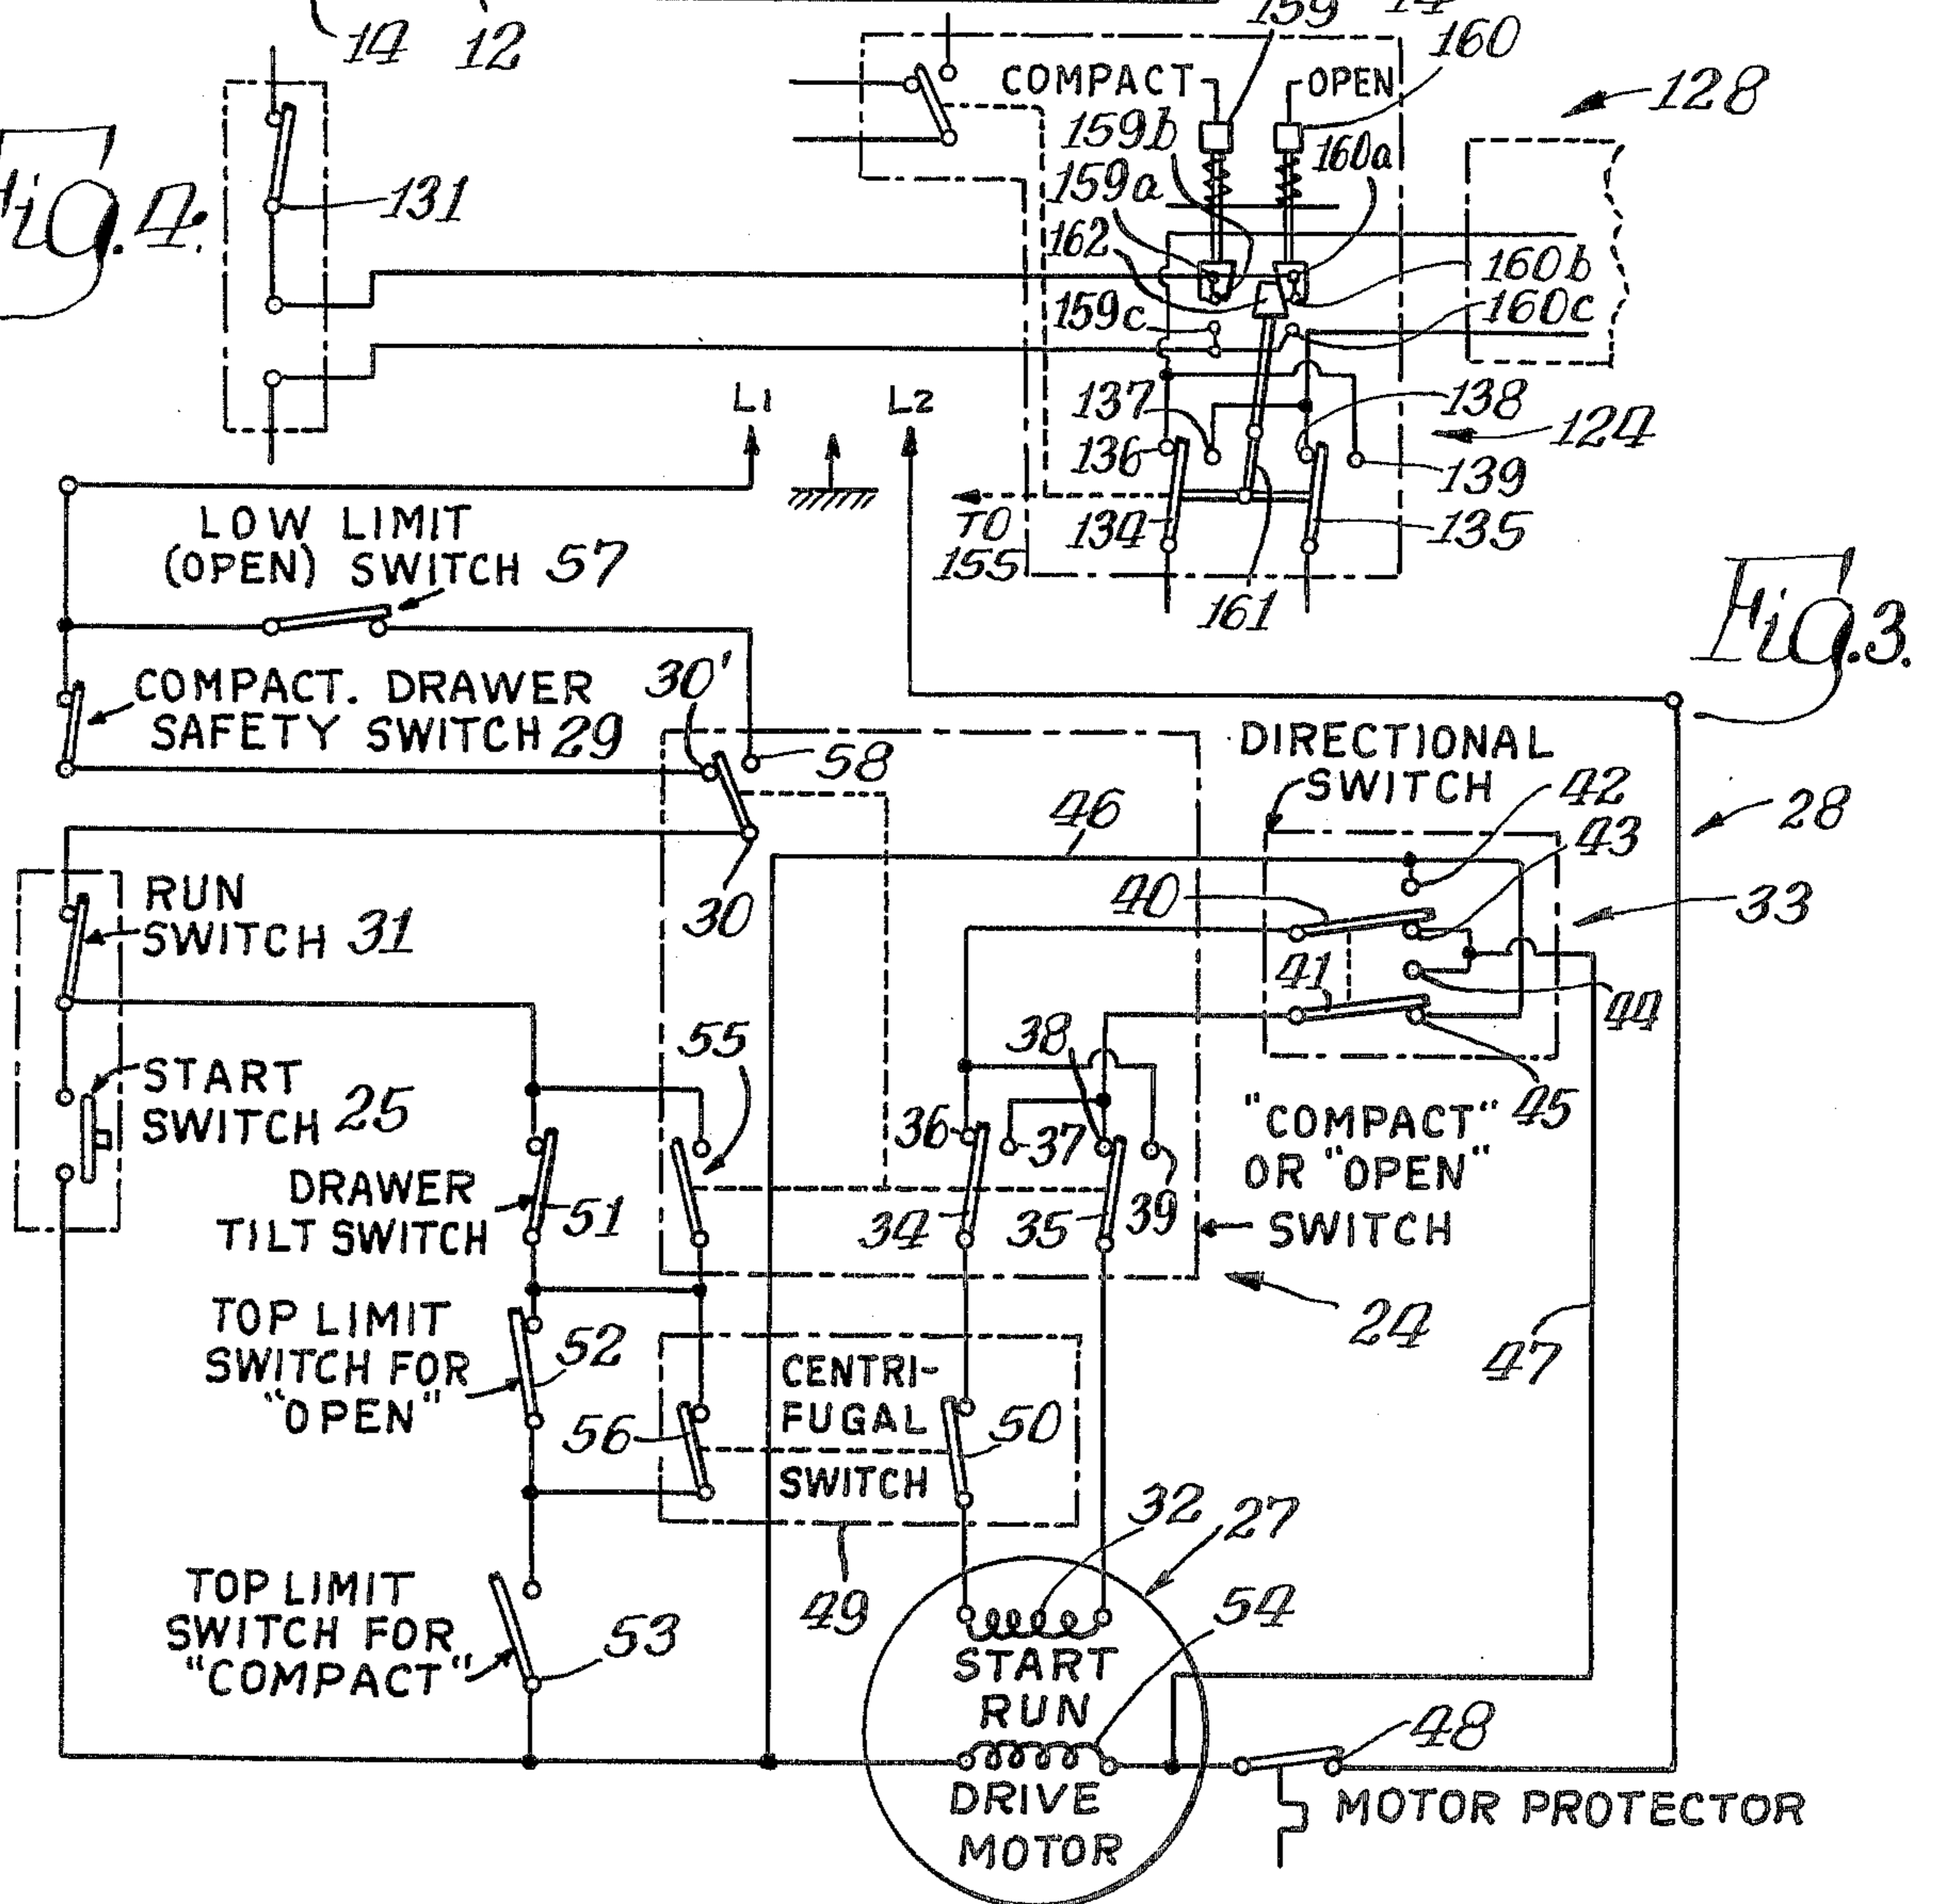 14 12
159 14
160
COMPACT
OPEN
128
159b
160a
159a
Fig. 4.
131
162
160b
159c
160c
L1
L2
137
138
124
136
139
TO
155
134
135
161
LOW LIMIT
(OPEN) SWITCH 57
Fig. 3.
COMPACT. DRAWER
SAFETY SWITCH 29
30'
58
DIRECTIONAL
SWITCH
42
46
43
28
RUN
SWITCH 31
30
40
33
41
44
START
SWITCH 25
55
38
"COMPACT"
OR "OPEN"
SWITCH
45
36
37
39
DRAWER
TILT SWITCH
51
34
35
24
TOP LIMIT
SWITCH FOR
"OPEN"
52
47
CENTRI-
FUGAL
SWITCH
56
50
32
27
49
54
TOP LIMIT
SWITCH FOR
"COMPACT"
53
START
RUN
48
DRIVE
MOTOR
MOTOR PROTECTOR